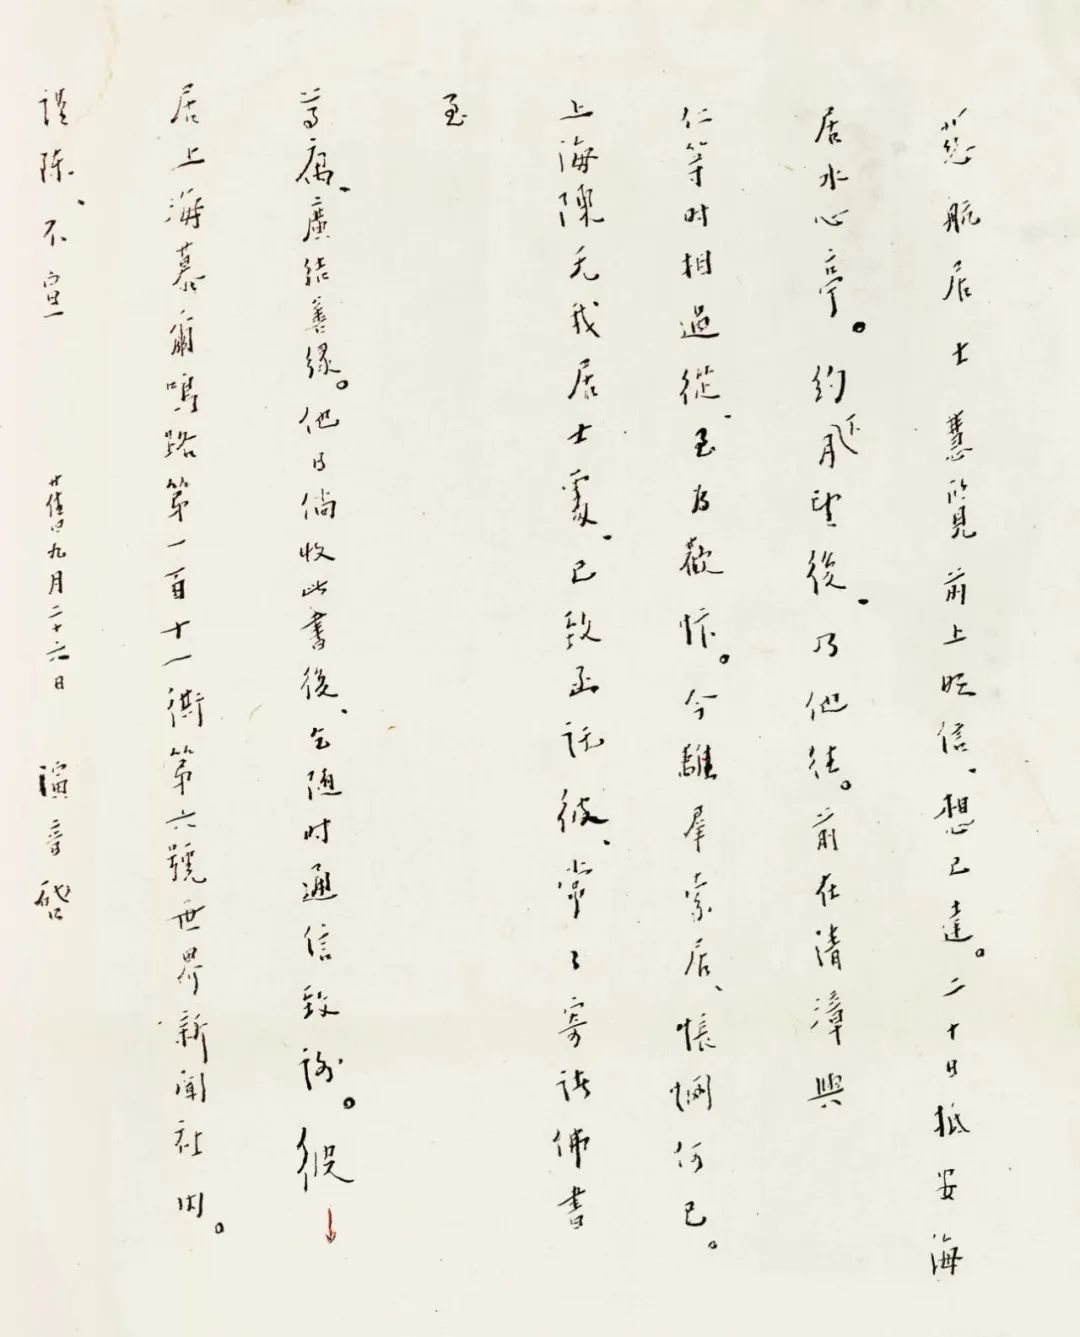 慈航居士慧覧前上信、想已達。二十日抵安海
居水心亭。約下月望後、乃他往。前在清漳與
仁等时相過從、至为歡忭。今離羣索居、悵惘何已。
上海陳无我居士處、已致函託彼、常々寄諸佛書
至
尊寓、廣結善緣。他日倘收此書後、乞随时通信致謝。彼
居上海慕爾鳴路第一百十一衖第六號世界新聞社内。
謹陳、不宣 舊九月二十六日 演音啓